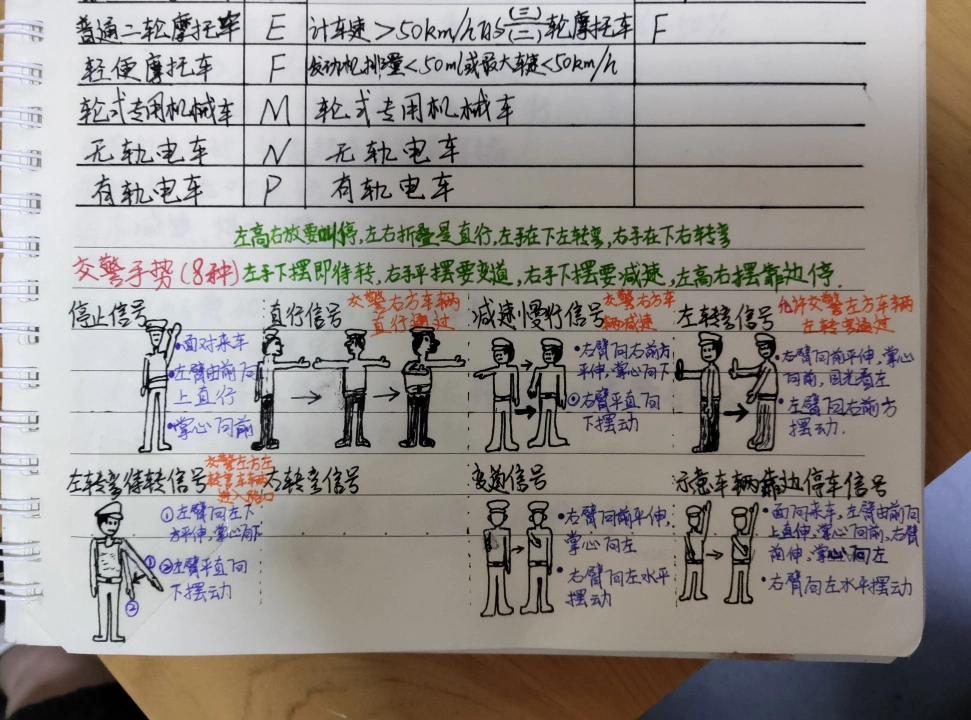 普通二轮摩托车 E 计车速>50km/h的(三)(二)轮摩托车 F
轻便摩托车 F 发动机排量<50ml或最大车速<50km/h
轮式专用机械车 M 轮式专用机械车
无轨电车 N 无轨电车
有轨电车 P 有轨电车
左高右放要叫停,左右折叠是直行,左手在下左转弯,右手在下右转弯
交警手势(8种)左手下摆即待转,右手平摆要变道,右手下摆要减速,左高右摆靠边停.
停止信号
•面对来车
•左臂由前向
上直行
•掌心向前
直行信号
交警右方车辆
直行通过
减速慢行信号
交警右方车
辆减速
•右臂向右前方
平伸,掌心向下
•右臂平直向
下摆动
左转弯信号
允许交警左方车辆
左转弯通过
•右臂向前平伸,掌心
向前,目光看左
•左臂向右前方
摆动.
左转弯待转信号
交警左方左
转弯车辆
进入路口
①左臂向左下
方平伸,掌心向下
②左臂平直向
下摆动
①
②
右转弯信号
变道信号
•右臂向前平伸,
掌心向左
•右臂向左水平
摆动
示意车辆靠边停车信号
•面向来车,左臂由前向
上直伸,掌心向前,右臂
前伸,掌心向左
•右臂向左水平摆动